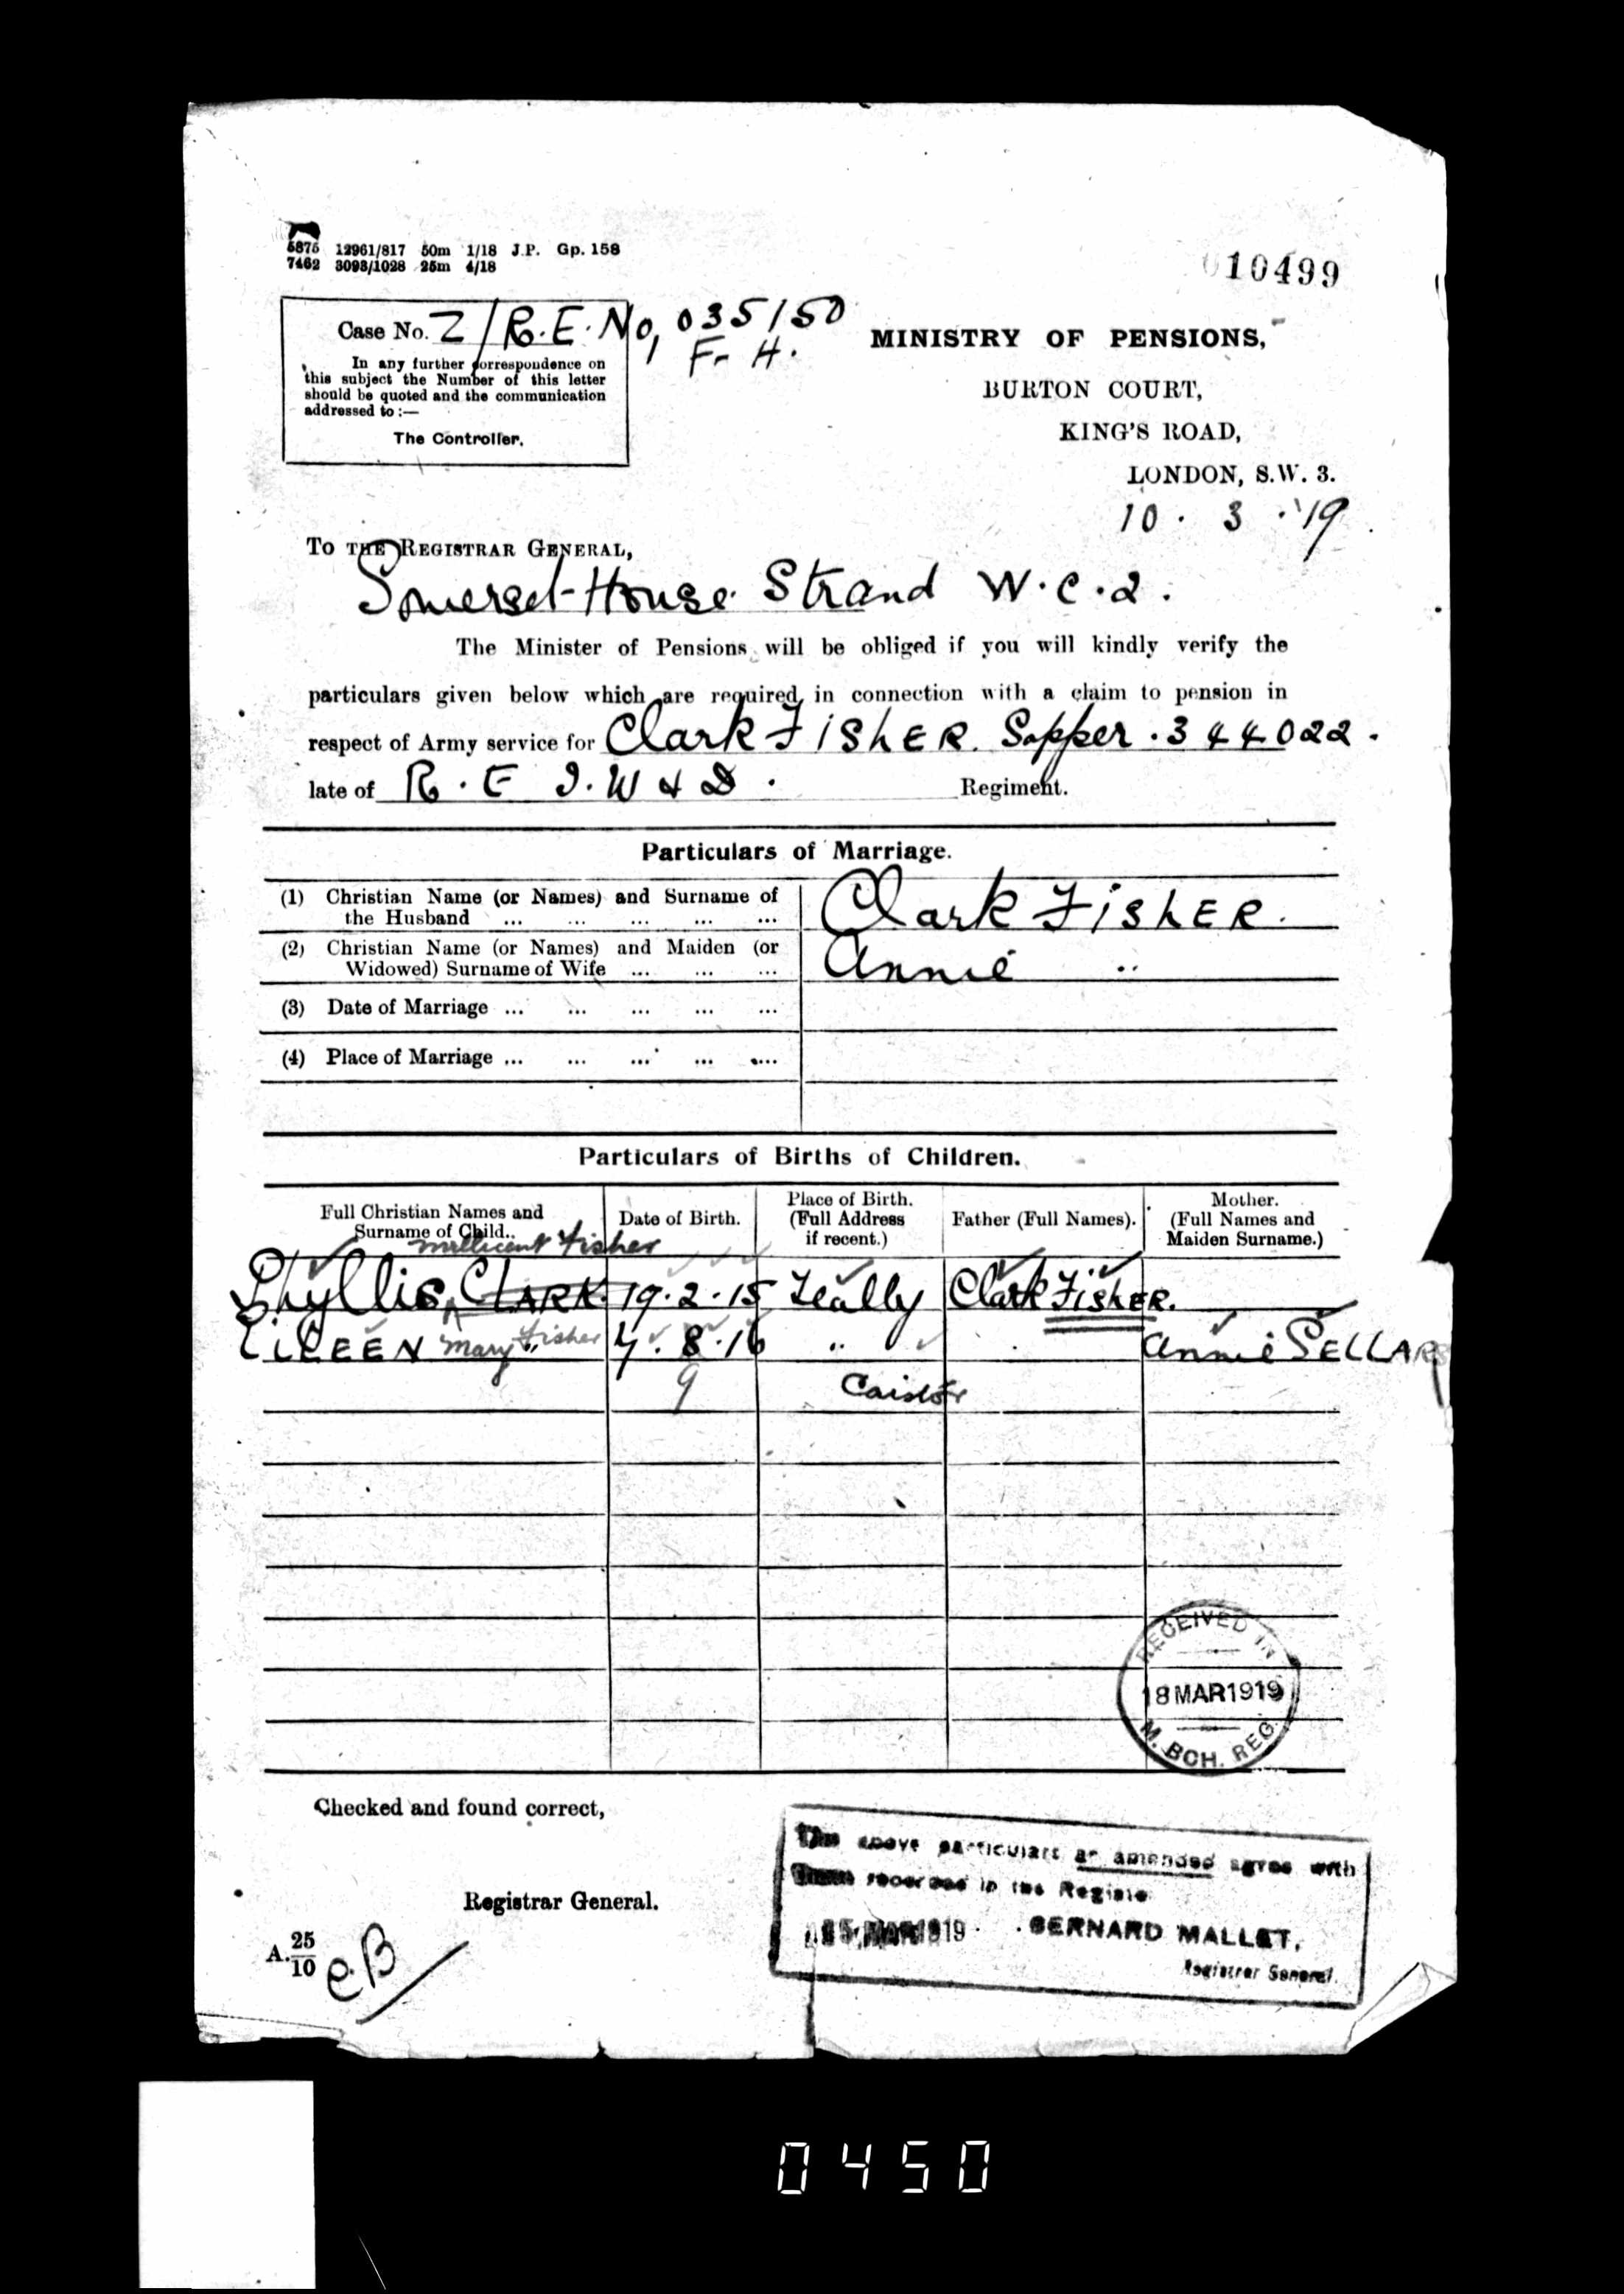 5875 12961/817 50m 1/18 J.P. Gp. 158
7462 3093/1028 25m 4/18
10499
Case No. Z/R.E. No, 035150
F. H.
In any further correspondence on
this subject the Number of this letter
should be quoted and the communication
addressed to :—
The Controller.
MINISTRY OF PENSIONS,
BURTON COURT,
KING'S ROAD,
LONDON, S.W. 3.
10. 3. '19
To THE REGISTRAR GENERAL,
Somerset House Strand W.C.2.
The Minister of Pensions will be obliged if you will kindly verify the
particulars given below which are required in connection with a claim to pension in
respect of Army service for Clark FISHER. Sapper. 344022.
late of R.E I.W & D. Regiment.
Particulars of Marriage.
(1) Christian Name (or Names) and Surname of
the Husband ... ... ... ... ... Clark FISHER.
(2) Christian Name (or Names) and Maiden (or
Widowed) Surname of Wife ... ... ... Annie "
(3) Date of Marriage ... ... ... ... ...
(4) Place of Marriage ... ... ... ... ...
Particulars of Births of Children.
Full Christian Names and
Surname of Child.
Date of Birth.
Place of Birth.
(Full Address
if recent.)
Father (Full Names).
Mother.
(Full Names and
Maiden Surname.)
Millicent Fisher
Phyllis CLARK. 19.2.15 Tealby Clark FISHER.
EILEEN Mary " Fisher 4.8.16 " Annie SELLARS
9 Caistor
RECEIVED IN
18 MAR 1919
M. BCH. REG.
Checked and found correct,
Registrar General.
A. 25/10
CB
The above particulars as amended agree with
those recorded in the Register
MAR 1919 BERNARD MALLET,
Registrar General.
0450